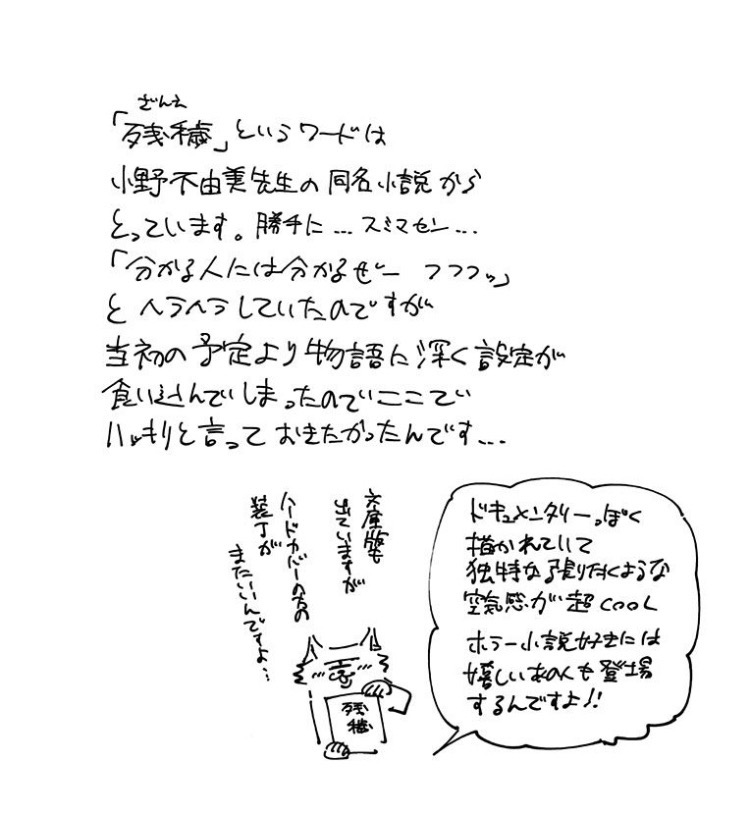 ざんえ
「残穢」というワードは
小野不由美先生の同名小説から
とっています。勝手に…スミマセン…
「分かる人には分かるぜー フフフッ」
とヘラヘラしていたのですが
当初の予定より物語に深く設定が
食い込んでしまったのでここで
ハッキリと言っておきたかったんです…
文庫版も
出ていますが
ハードカバーの方の
装丁が
またいいんですよ…
残
穢
ドキュメンタリーっぽく
描かれていて
独特な張り付くような
空気感が超cooL
ホラー小説好きには
嬉しいあの人も登場
するんですよ!!